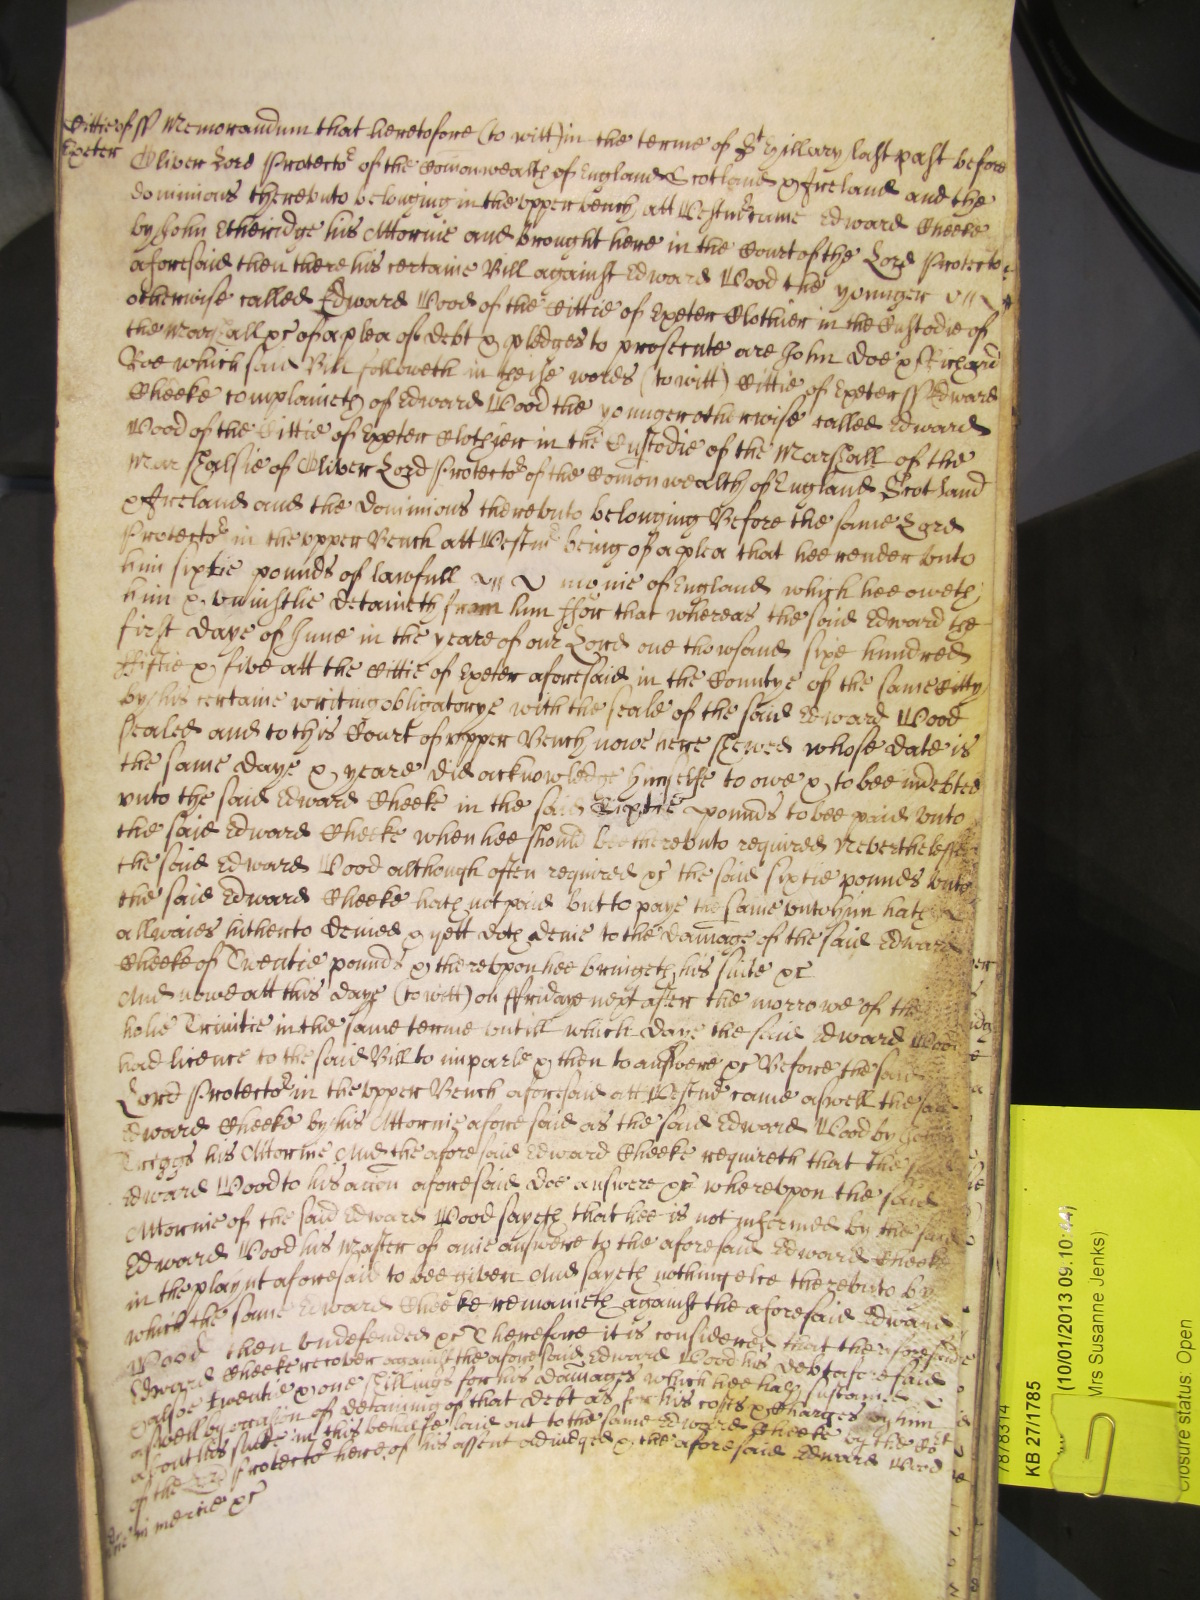 Cittie of ss Memorandum that heretofore (to witt) in the terme of St Hillary last past before
Exeter Oliver Lord Protector of the Comonwealth of England Scotland & Ireland and the
dominions therevnto belonging in the vpper bench att Westmr came Edward Cheeke
by John Etheridge his Attornie and brought here in the Court of the Lord Protector
aforesaid then there his certaine Bill against Edward Wood the younger
otherwise called Edward Wood of the Cittie of Exeter Clothier in the Custodie of
the Marshall &c of a plea of debt & pledges to prosecute are John Doe & Richard
Roe which said Bill followeth in theise words (to witt) Cittie of Exeter ss Edward
Cheeke complaineth of Edward Wood the younger otherwise called Edward
Wood of the Cittie of Exeter Clothier in the Custodie of the Marshall of the
Marshalsie of Oliver Lord Protector of the Comonwealth of England Scotland
& Ireland and the dominions therevnto belonging Before the same Lord
Protector in the vpper Bench att Westmr being of a plea that hee render vnto
him sixtie pounds of lawfull monie of England which hee oweth
him & vniustlie detaineth from him ffor that whereas the said Edward the
first daye of June in the yeare of our Lord one thowsand sixe hundred
ffiftie & five att the Cittie of Exeter aforesaid in the Countye of the same Citty
by his certaine writing obligatorye with the seale of the said Edward Wood
sealed and to this Court of vpper Bench nowe here shewed whose date is
the same daye & yeare did acknowledge himselfe to owe & to bee indebted
vnto the said Edward Cheeke in the said Sixtie pounds to bee paid vnto
the said Edward Cheeke when hee should bee therevnto required Neverthelesse
the said Edward Wood although often required &c the said sixtie pounds vnto
the said Edward Cheeke hath not paid but to paye the same vnto him hath
allwaies hitherto denied & yett doth denie to the damage of the said Edward
Cheeke of Twentie pounds & therevpon hee bringeth his suite &c
And nowe att this daye (to witt) on ffridaye next after the morrowe of the
holie Trinitie in the same terme vntill which daye the said Edward Wood
had licence to the said Bill to imparle & then to answere &c Before the said
Lord Protector in the vpper Bench aforesaid att Westmr came aswell the said
Edward Cheeke by his Attornie aforesaid as the said Edward Wood by John
Triggs his Attornie And the aforesaid Edward Cheeke requireth that the said
Edward Wood to his accon aforesaid doe answere &c wherevpon the said
Attornie of the said Edward Wood sayeth that hee is not informed by the said
Edward Wood his Master of anie answere to the aforesaid Edward Cheeke
in the playnt aforesaid to bee given And sayeth nothing else therevnto by
which the same Edward Cheeke remaineth against the aforesaid Edward
Wood then vndefended &c Therefore it is considered that the aforesaid
Edward Cheeke recover against the aforesaid Edward Wood his debt aforesaid
& alsoe twentie & one shillings for his damages which hee hath sustained
aswell by occasion of detaining of that debt as for his costs & charges by him
about his suite in this behalfe laid out to the same Edward Cheeke by the Court
of the Lord Protector here of his assent adiudged & the aforesaid Edward Wood
in mercie &c
7878314
KB 27/1785
(10/01/2013 09:10:44)
Mrs Susanne Jenks)
Closure status: Open